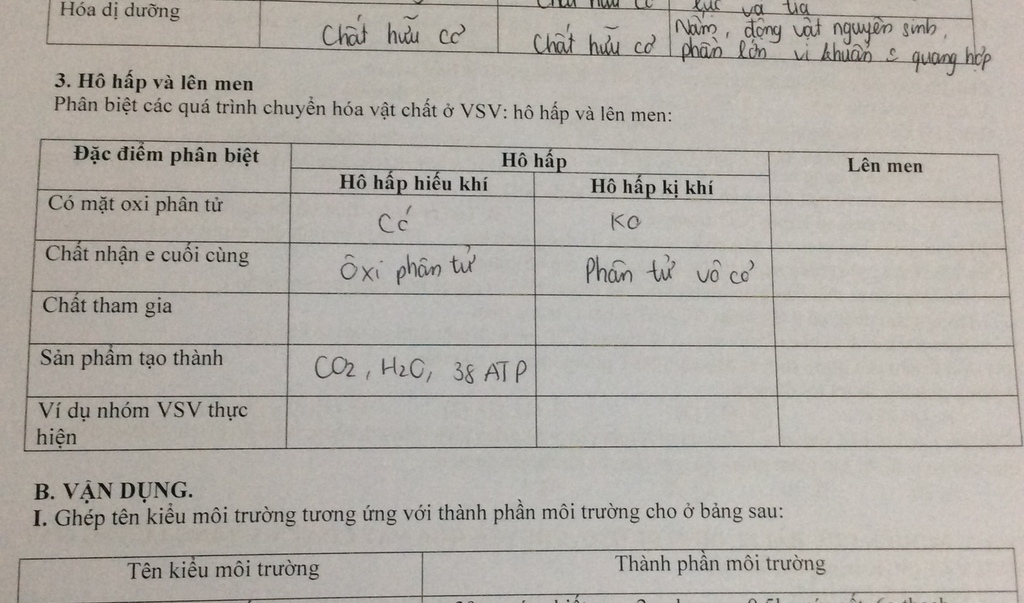 Hóa dị dưỡng
Chất hữu cơ
Chất hữu cơ
lục và tía
Nấm, động vật nguyên sinh,
phần lớn vi khuẩn quang hợp
3. Hô hấp và lên men
Phân biệt các quá trình chuyển hóa vật chất ở VSV: hô hấp và lên men:
Đặc điểm phân biệt
Hô hấp
Lên men
Hô hấp hiếu khí
Hô hấp kị khí
Có mặt oxi phân tử
Có
KO
Chất nhận e cuối cùng
Ôxi phân tử
Phân tử vô cơ
Chất tham gia
Sản phẩm tạo thành
CO2, H2O, 38 ATP
Ví dụ nhóm VSV thực
hiện
B. VẬN DỤNG.
I. Ghép tên kiểu môi trường tương ứng với thành phần môi trường cho ở bảng sau:
Tên kiểu môi trường
Thành phần môi trường